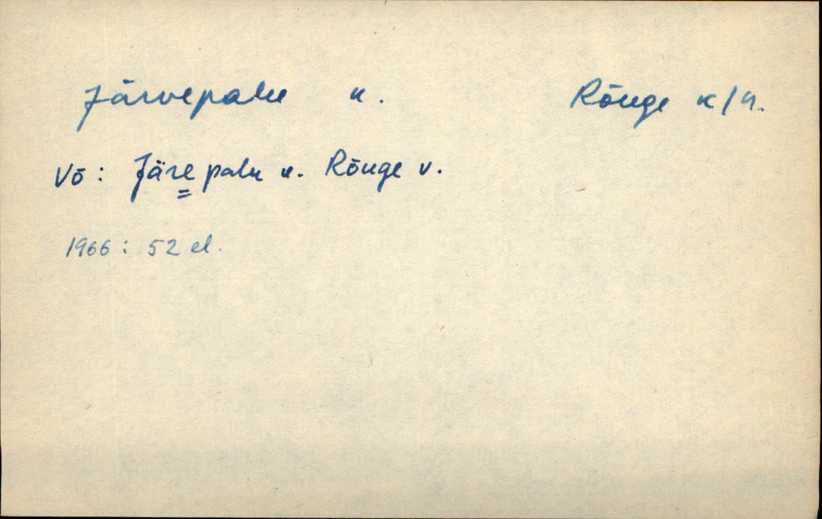 Järvepalu k. Rõuge k/n.
Võ: Järepalu k. Rõuge v.
1966: 52 el.